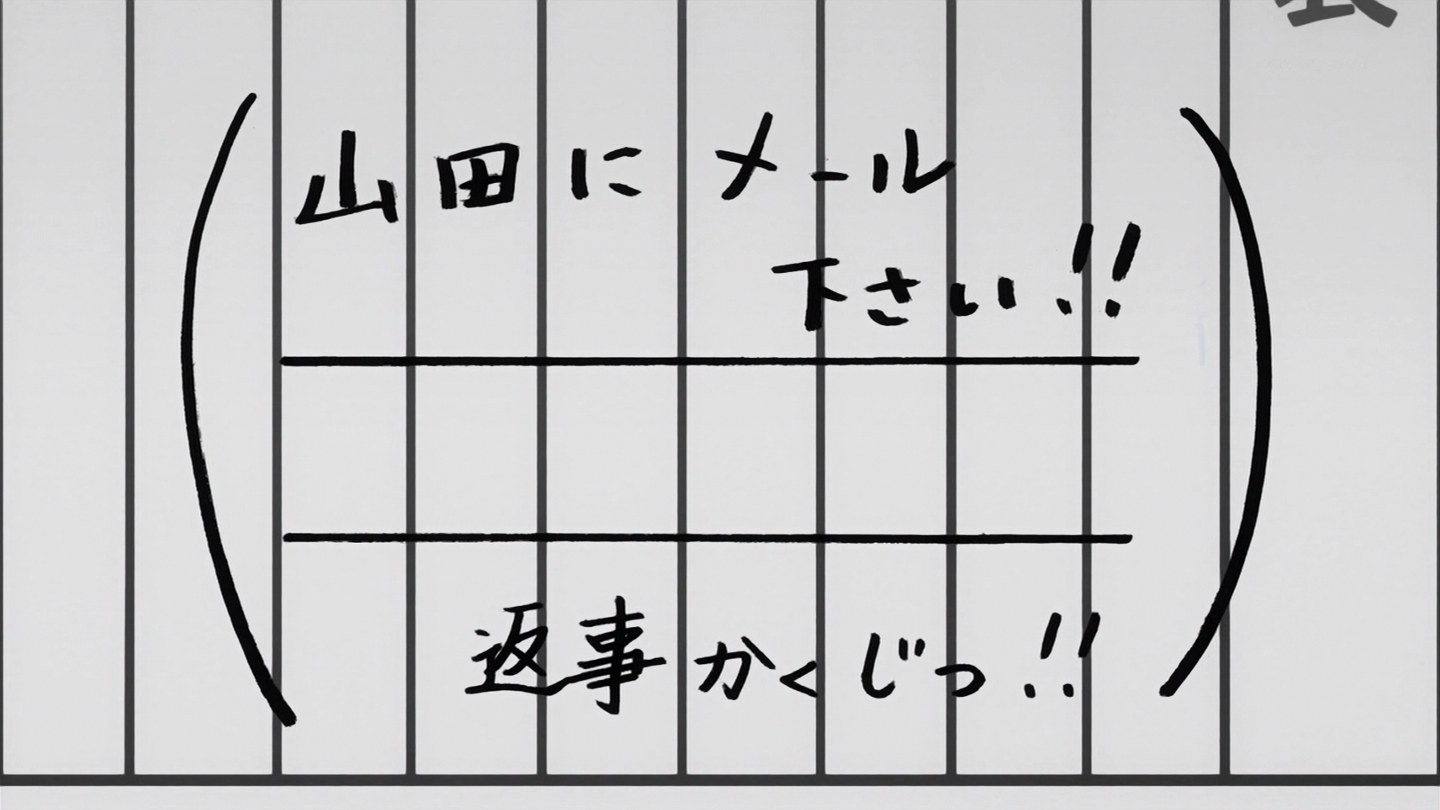 山田にメール
下さい!!
返事かくじつ!!